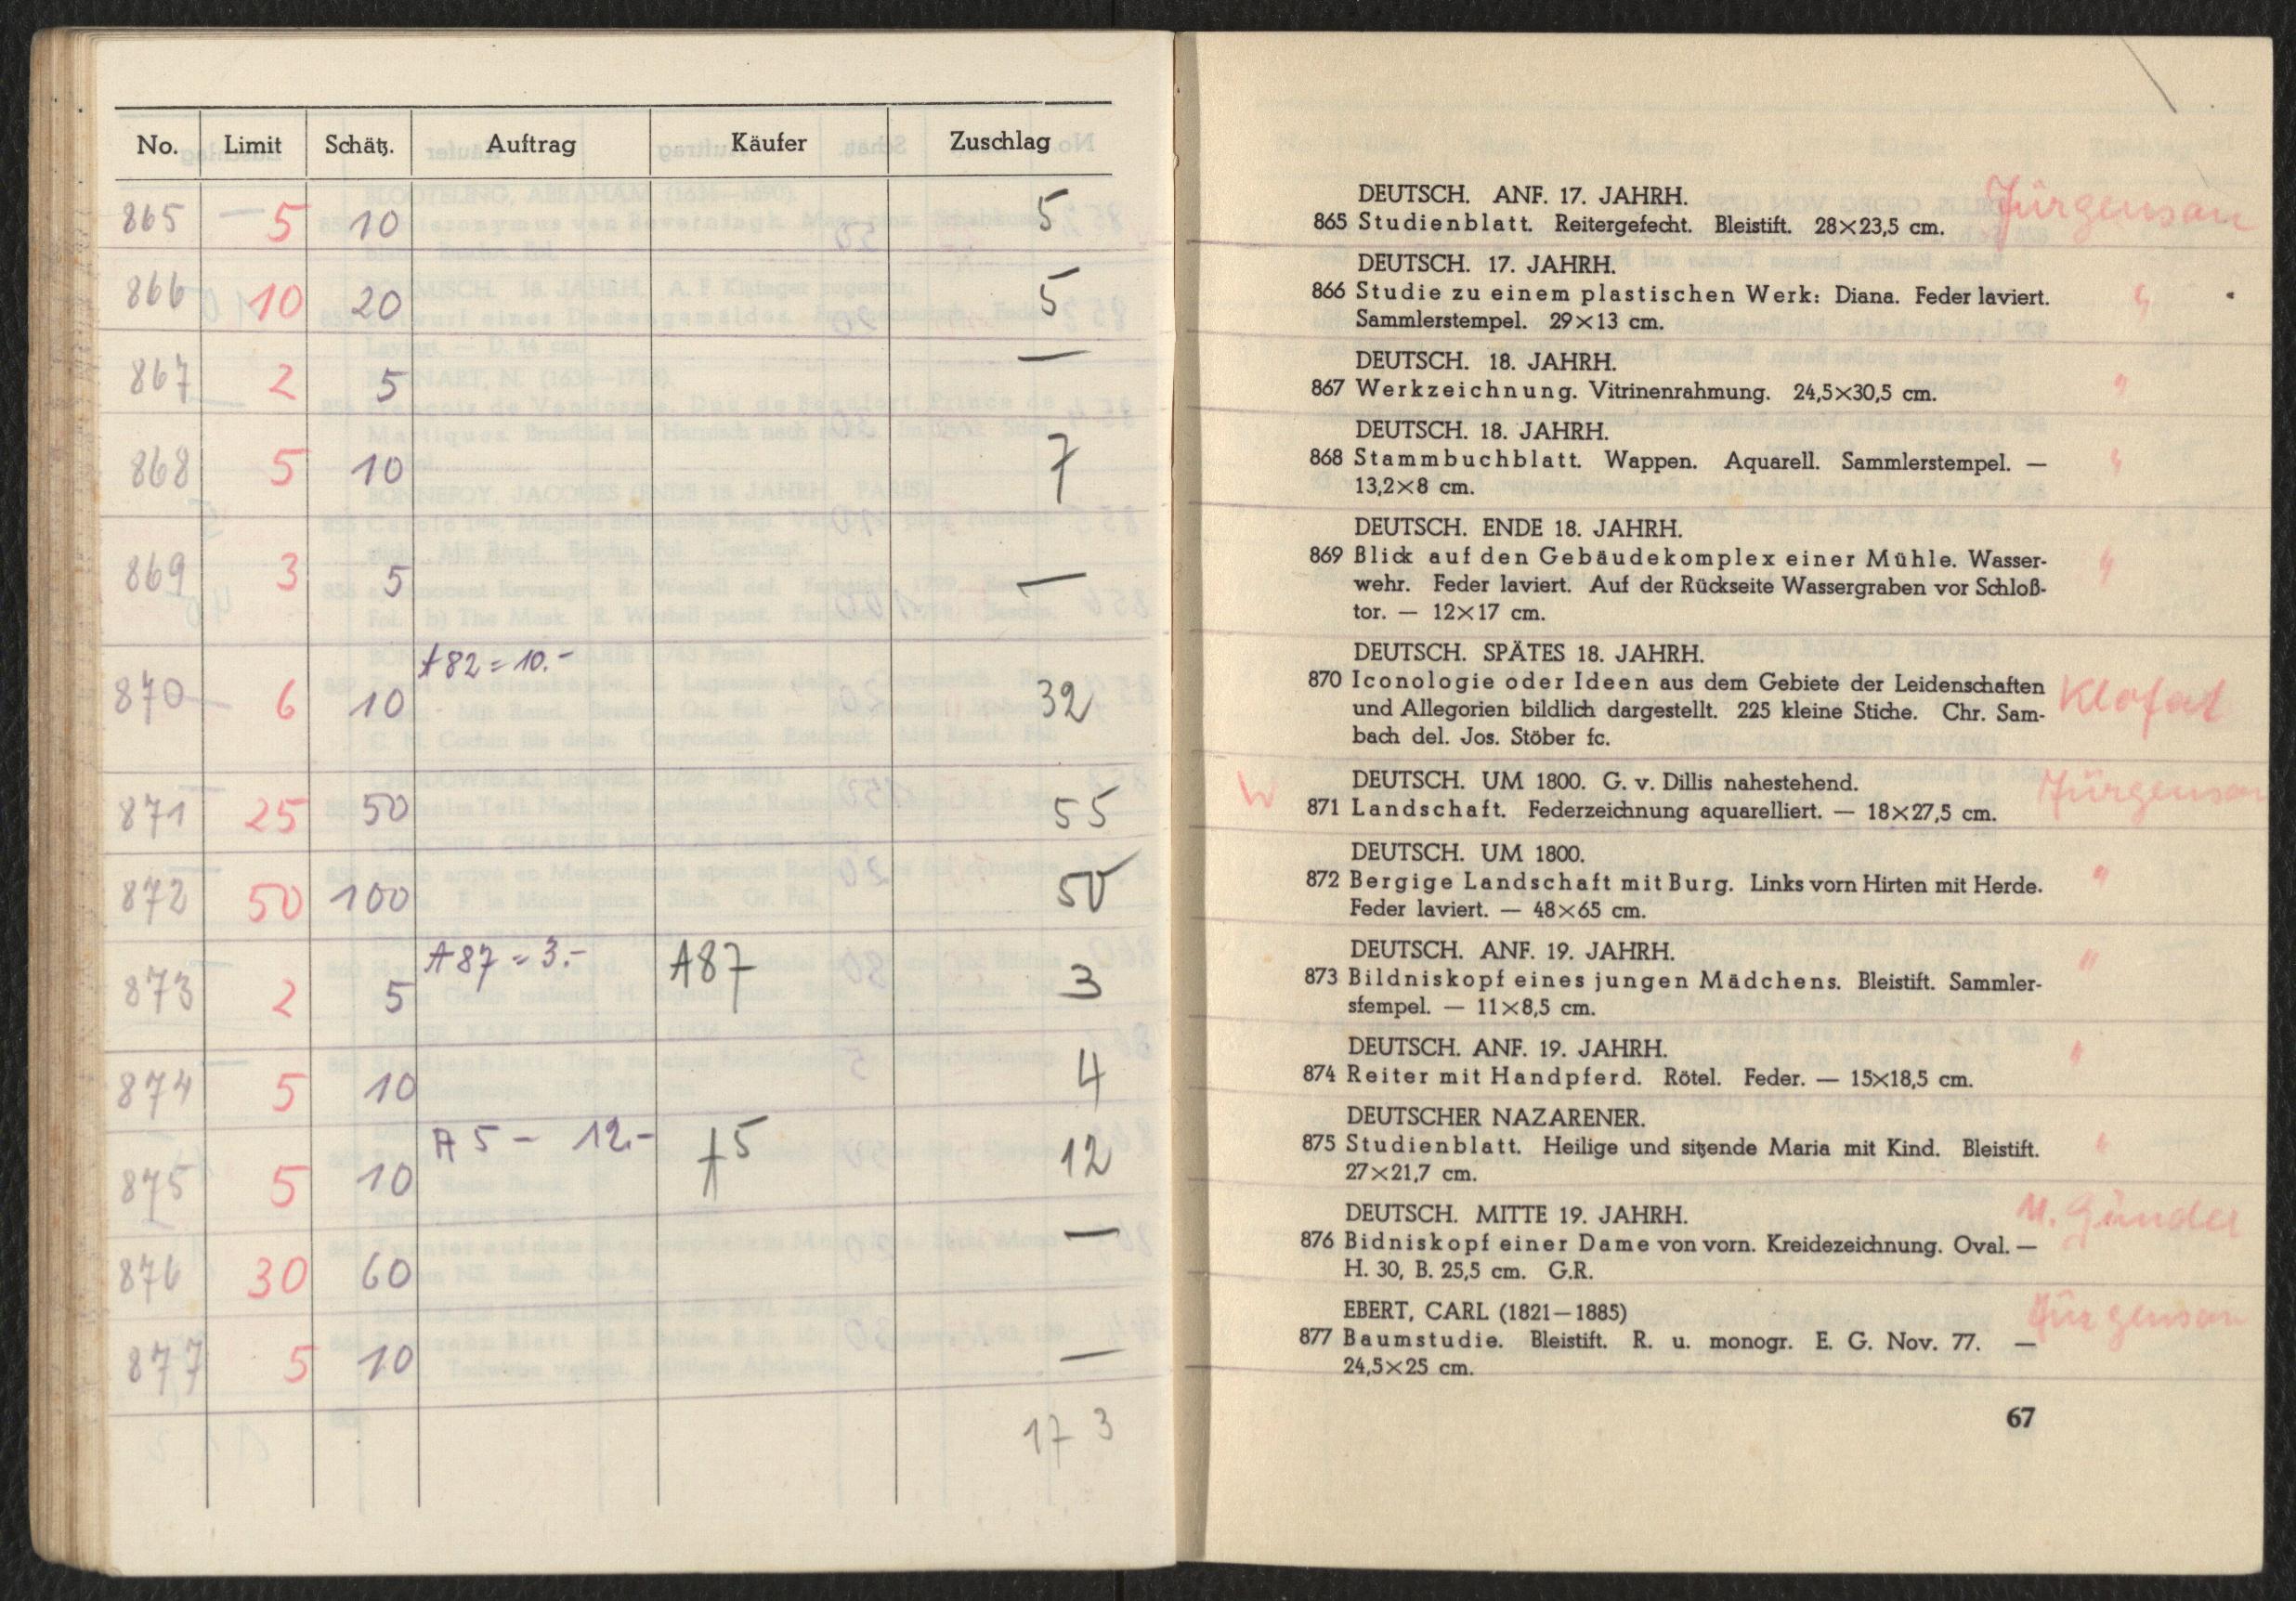 No. Limit Schätz. Auftrag Käufer Zuschlag
865 5 10 5
866 10 20 5
867 2 5 —
868 5 10 7
869 3 5 —
870 6 10 A82 = 10.- 32
871 25 50 55
872 50 100 50
873 2 5 A87 = 3.- A87 3
874 5 10 4
875 5 10 A5 - 12.- A5 12
876 30 60 —
877 5 10 —
173
DEUTSCH. ANF. 17. JAHRH. Jürgenson
865 Studienblatt. Reitergefecht. Bleistift. 28×23,5 cm.
DEUTSCH. 17. JAHRH.
866 Studie zu einem plastischen Werk: Diana. Feder laviert. "
Sammlerstempel. 29×13 cm.
DEUTSCH. 18. JAHRH.
867 Werkzeichnung. Vitrinenrahmung. 24,5×30,5 cm. "
DEUTSCH. 18. JAHRH.
868 Stammbuchblatt. Wappen. Aquarell. Sammlerstempel. — "
13,2×8 cm.
DEUTSCH. ENDE 18. JAHRH.
869 Blick auf den Gebäudekomplex einer Mühle. Wasser- "
wehr. Feder laviert. Auf der Rückseite Wassergraben vor Schloß-
tor. — 12×17 cm.
DEUTSCH. SPÄTES 18. JAHRH.
870 Iconologie oder Ideen aus dem Gebiete der Leidenschaften Klofat
und Allegorien bildlich dargestellt. 225 kleine Stiche. Chr. Sam-
bach del. Jos. Stöber fc.
W DEUTSCH. UM 1800. G. v. Dillis nahestehend. Jürgenson
871 Landschaft. Federzeichnung aquarelliert. — 18×27,5 cm.
DEUTSCH. UM 1800.
872 Bergige Landschaft mit Burg. Links vorn Hirten mit Herde. "
Feder laviert. — 48×65 cm.
DEUTSCH. ANF. 19. JAHRH. "
873 Bildniskopf eines jungen Mädchens. Bleistift. Sammler-
stempel. — 11×8,5 cm.
DEUTSCH. ANF. 19. JAHRH. "
874 Reiter mit Handpferd. Rötel. Feder. — 15×18,5 cm.
DEUTSCHER NAZARENER.
875 Studienblatt. Heilige und sitzende Maria mit Kind. Bleistift. "
27×21,7 cm.
DEUTSCH. MITTE 19. JAHRH. M. Günder
876 Bidniskopf einer Dame von vorn. Kreidezeichnung. Oval. —
H. 30, B. 25,5 cm. G.R.
EBERT, CARL (1821—1885) Jürgenson
877 Baumstudie. Bleistift. R. u. monogr. E. G. Nov. 77. —
24,5×25 cm.
67